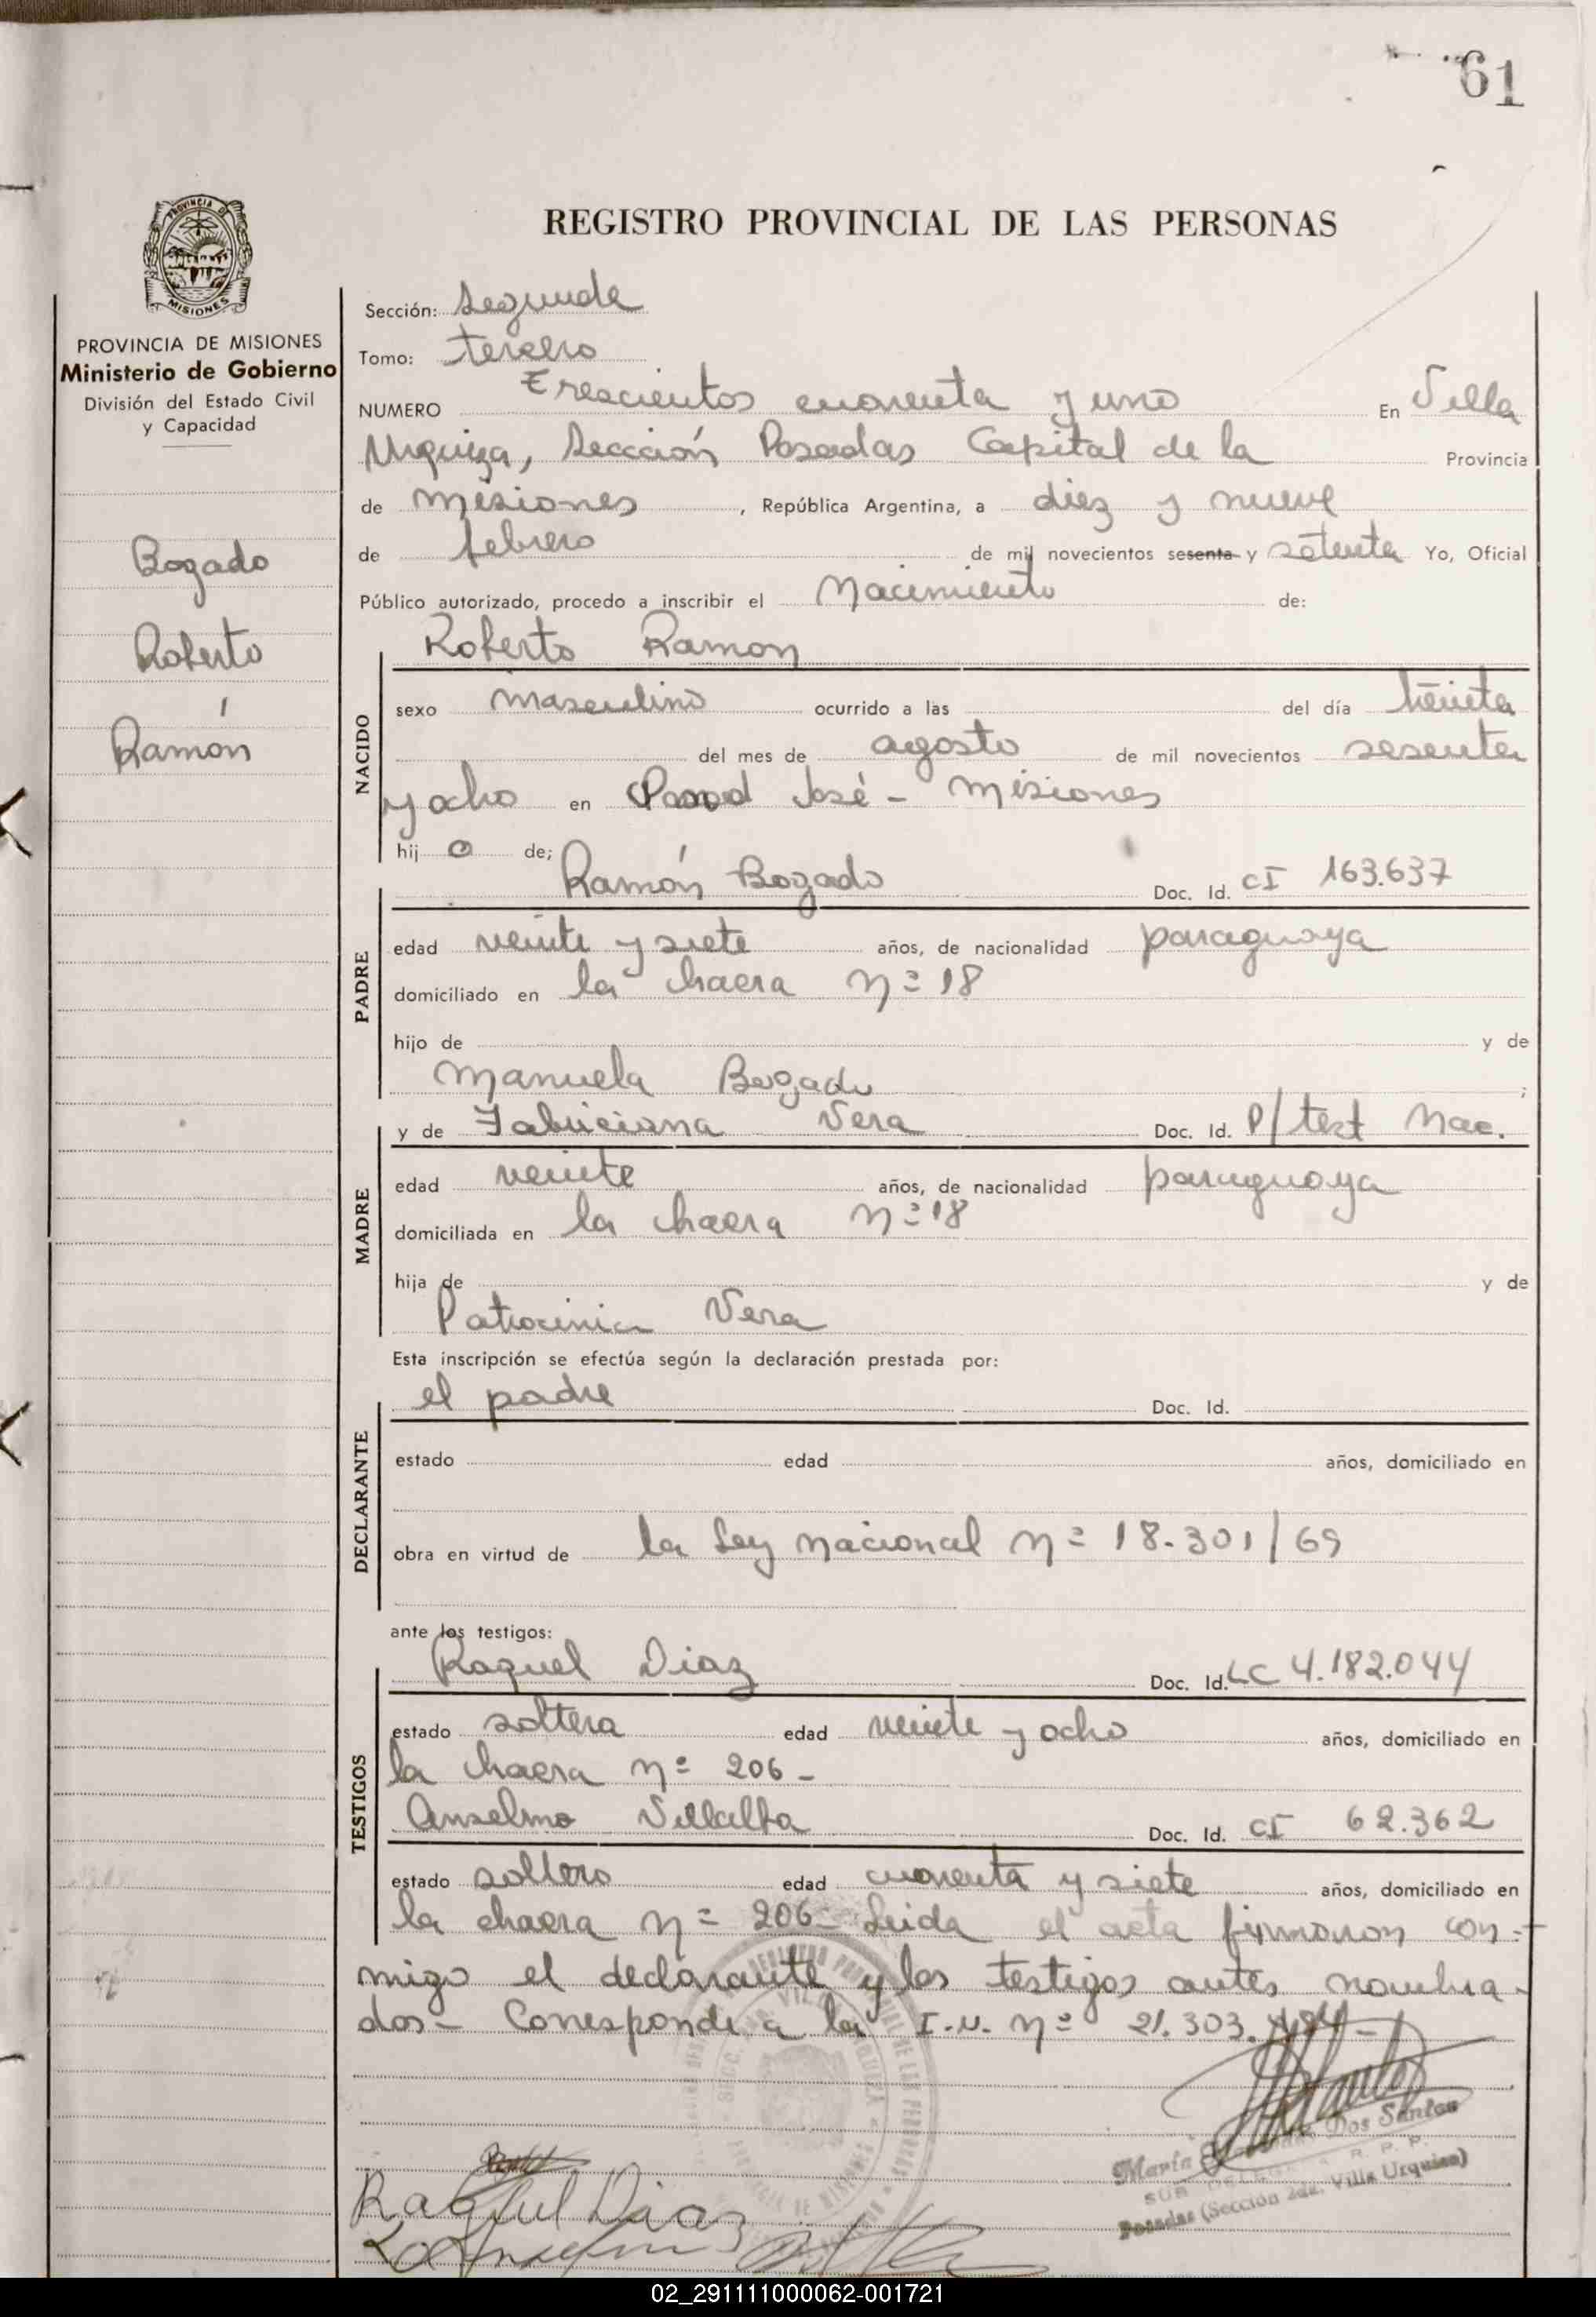 61
PROVINCIA DE
MISIONES
REGISTRO PROVINCIAL DE LAS PERSONAS
PROVINCIA DE MISIONES
Ministerio de Gobierno
División del Estado Civil
y Capacidad
Bogado
Roberto
Ramón
Sección: Segunda
Tomo: tercero
NUMERO Trescientos cuarenta y uno En Villa
Urquiza, Sección Posadas Capital de la Provincia
de Misiones, República Argentina, a diez y nueve
de febrero de mil novecientos sesenta y setenta Yo, Oficial
Público autorizado, procedo a inscribir el Nacimiento de:
Roberto Ramon
NACIDO
sexo masculino ocurrido a las del día treinta
del mes de agosto de mil novecientos sesenta
y ocho en José - Misiones
hijo de;
Ramón Bogado Doc. Id. CI 163.637
PADRE
edad veinte y siete años, de nacionalidad paraguaya
domiciliado en la chacra Nº 18
hijo de y de
Manuela Bogado ;
y de Fabriciana Vera Doc. Id. P/test Nac.
MADRE
edad veinte años, de nacionalidad paraguaya
domiciliada en la chacra Nº 18
hija de y de
Patrocinia Vera
Esta inscripción se efectúa según la declaración prestada por:
el padre Doc. Id.
DECLARANTE
estado edad años, domiciliado en
obra en virtud de la Ley Nacional Nº 18.301/69
ante los testigos:
Raquel Diaz Doc. Id. LC 4.182.044
TESTIGOS
estado soltera edad veinte y ocho años, domiciliado en
la chacra Nº 206 -
Anselmo Villalba Doc. Id. CI 62.362
estado soltero edad cuarenta y siete años, domiciliado en
la chacra Nº 206 - Leida el acta firmaron con-
migo el declarante y los testigos antes nombra-
dos - Corresponde a la I.N. Nº 21.303.
María Dos Santos
SUB R. P. P.
Posadas (Sección 2da. Villa Urquiza)
Raquel Diaz
02_291111000062-001721